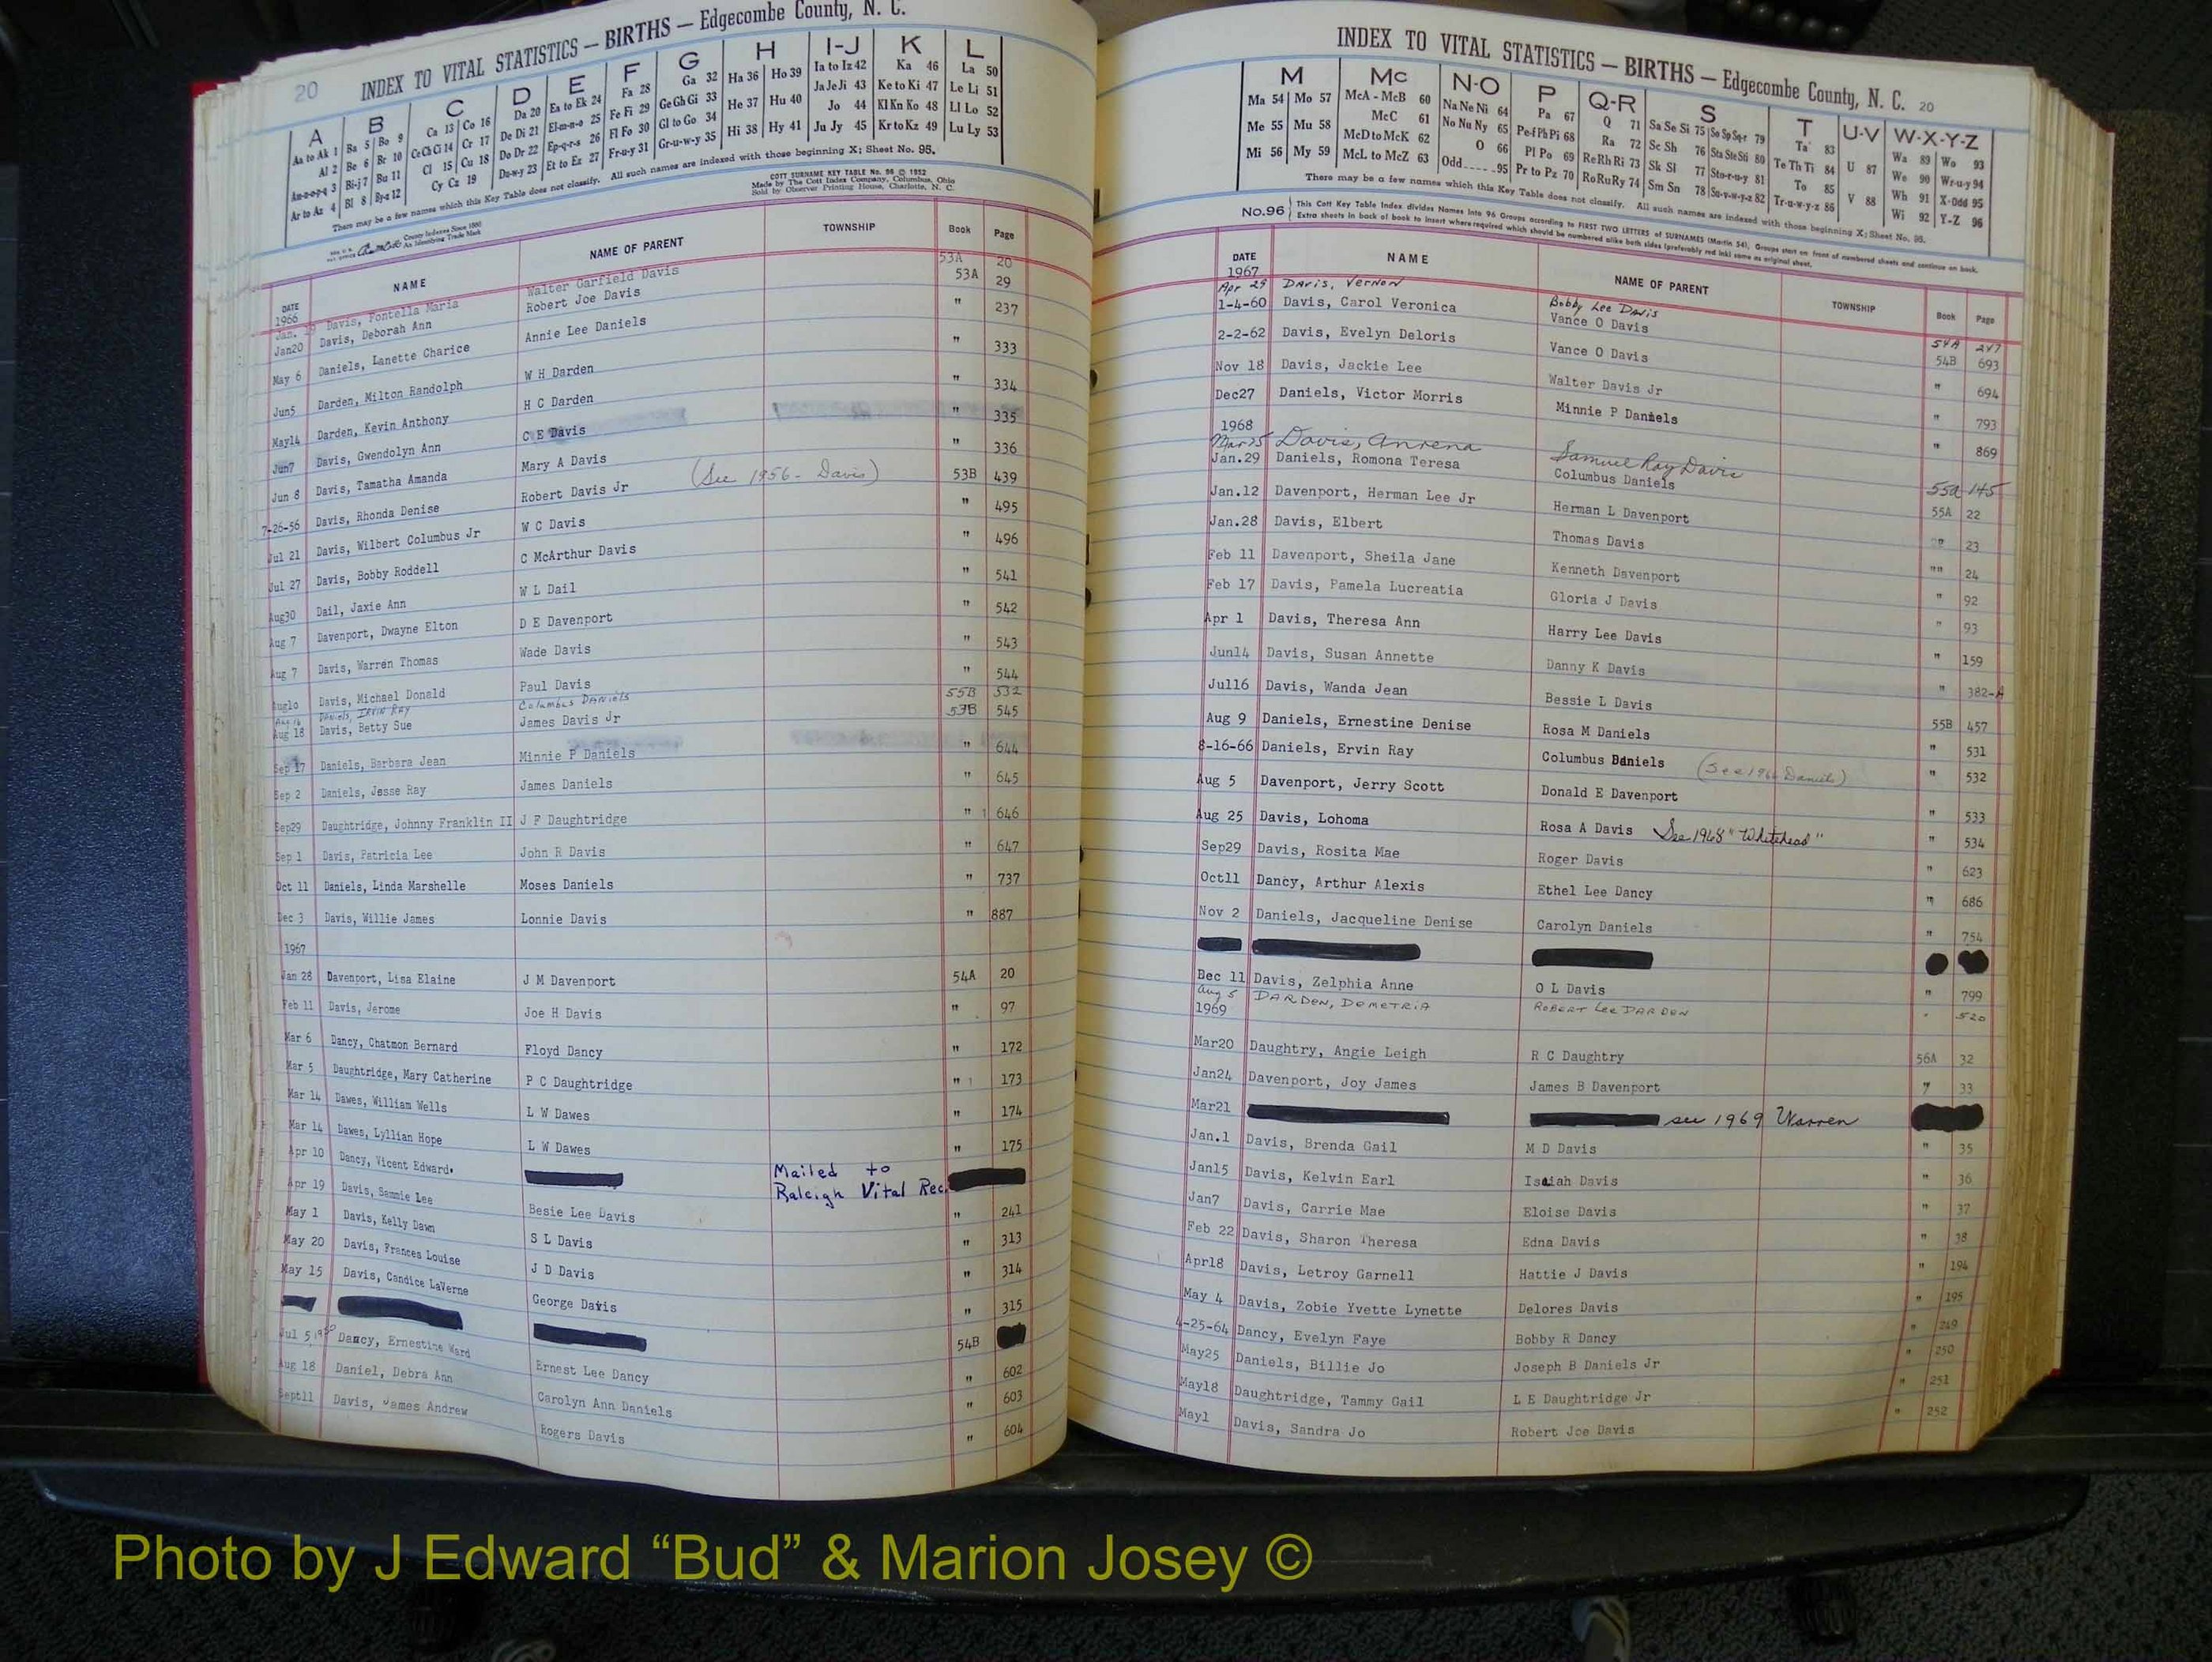 20 INDEX TO VITAL STATISTICS — BIRTHS — Edgecombe County, N. C.
A B C D E F G H I-J K L
Aa to Ak 1 Ba 5 Bo 9 Ca 13 Co 16 Da 20 Ea to Ek 24 Fa 28 Ga 32 Ha 36 Ho 39 Ia to Iz 42 Ka 46 La 50
Al 2 Be 6 Br 10 Ce Ch Ci 14 Cr 17 De Di 21 El-m-n-o 25 Fe Fi 29 Ge Gh Gi 33 He 37 Hu 40 Ja Je Ji 43 Ke to Ki 47 Le Li 51
Am-n-o-p-q 3 Bi-j 7 Bu 11 Cl 15 Cu 18 Do Dr 22 Ep-q-r-s 26 Fl Fo 30 Gl to Go 34 Hi 38 Hy 41 Jo 44 Kl Kn Ko 48 Ll Lo 52
Ar to Az 4 Bl 8 By-z 12 Cy Cz 19 Du-w-y 23 Et to Ez 27 Fr-u-y 31 Gr-u-w-y 35 Ju Jy 45 Kr to Kz 49 Lu Ly 53
There may be a few names which this Key Table does not classify. All such names are indexed with those beginning X; Sheet No. 95.
COTT SURNAME KEY TABLE No. 96 © 1952
Made by The Cott Index Company, Columbus, Ohio
Sold by Observer Printing House, Charlotte, N. C.
County Indexes Since 1880
An Identifying Trade Mark
DATE NAME NAME OF PARENT TOWNSHIP Book Page
1966
Davis, Fontella Maria Walter Garfield Davis 53A 20
Jan20 Davis, Deborah Ann Robert Joe Davis 53A 29
May 6 Daniels, Lanette Charice Annie Lee Daniels " 237
Jun5 Darden, Milton Randolph W H Darden " 333
May14 Darden, Kevin Anthony H C Darden " 334
Jun7 Davis, Gwendolyn Ann C E Davis " 335
Jun 8 Davis, Tamatha Amanda Mary A Davis " 336
7-26-56 Davis, Rhonda Denise Robert Davis Jr (See 1956 - Davis) 53B 439
Jul 21 Davis, Wilbert Columbus Jr W C Davis " 495
Jul 27 Davis, Bobby Roddell C McArthur Davis " 496
Aug30 Dail, Jaxie Ann W L Dail " 541
Aug 7 Davenport, Dwayne Elton D E Davenport " 542
Aug 7 Davis, Warren Thomas Wade Davis " 543
Aug10 Davis, Michael Donald Paul Davis " 544
Aug 16 DANIELS, IRVIN RAY Columbus DANIELS 55B 532
Aug 18 Davis, Betty Sue James Davis Jr 53B 545
Sep 17 Daniels, Barbara Jean Minnie P Daniels " 644
Sep 2 Daniels, Jesse Ray James Daniels " 645
Sep29 Daughtridge, Johnny Franklin II J F Daughtridge " 646
Sep 1 Davis, Patricia Lee John R Davis " 647
Oct 11 Daniels, Linda Marshelle Moses Daniels " 737
Dec 3 Davis, Willie James Lonnie Davis " 887
1967
Jan 28 Davenport, Lisa Elaine J M Davenport 54A 20
Feb 11 Davis, Jerome Joe H Davis " 97
Mar 6 Dancy, Chatmon Bernard Floyd Dancy " 172
Mar 5 Daughtridge, Mary Catherine P C Daughtridge " 173
Mar 14 Dawes, William Wells L W Dawes " 174
Mar 14 Dawes, Lyllian Hope L W Dawes " 175
Apr 10 Dancy, Vicent Edward. Mailed to
Raleigh Vital Rec.
Apr 19 Davis, Sammie Lee Besie Lee Davis " 241
May 1 Davis, Kelly Dawn S L Davis " 313
May 20 Davis, Frances Louise J D Davis " 314
May 15 Davis, Candice LaVerne George Davis " 315
54B
Jul 5 Dancy, Ernestine Ward Ernest Lee Dancy " 602
Aug 18 Daniel, Debra Ann Carolyn Ann Daniels " 603
Sept11 Davis, James Andrew Rogers Davis " 604
INDEX TO VITAL STATISTICS — BIRTHS — Edgecombe County, N. C. 20
M Mc N-O P Q-R S T U-V W-X-Y-Z
Ma 54 Mo 57 McA - McB 60 Na Ne Ni 64 Pa 67 Q 71 Sa Se Si 75 So Sp Sq-r 79 Ta 83 U 87 Wa 89 Wo 93
Me 55 Mu 58 McC 61 No Nu Ny 65 Pe-f Ph Pi 68 Ra 72 Sc Sh 76 Sta Ste Sti 80 Te Th Ti 84 V 88 We 90 Wr-u-y 94
Mi 56 My 59 McD to McK 62 O 66 Pl Po 69 Re Rh Ri 73 Sk Sl 77 Sto-r-u-y 81 To 85 Wh 91 X-Odd 95
McL to McZ 63 Odd - - - - - 95 Pr to Pz 70 Ro Ru Ry 74 Sm Sn 78 Su-v-w-y-z 82 Tr-u-w-y-z 86 Wi 92 Y-Z 96
There may be a few names which this Key Table does not classify. All such names are indexed with those beginning X; Sheet No. 95.
No.96 This Cott Key Table Index divides Names into 96 Groups according to FIRST TWO LETTERS of SURNAMES (Martin 54). Groups start on front of numbered sheets and continue on back.
Extra sheets in back of book to insert where required which should be numbered alike both sides (preferably red ink) same as original sheet.
DATE NAME NAME OF PARENT TOWNSHIP Book Page
1967
Apr 29 DAVIS, VERNON Bobby Lee DAVIS 54A 247
1-4-60 Davis, Carol Veronica Vance O Davis 54B 693
2-2-62 Davis, Evelyn Deloris Vance O Davis " 694
Nov 18 Davis, Jackie Lee Walter Davis Jr " 793
Dec27 Daniels, Victor Morris Minnie P Daniels " 869
1968
Mar 25 Davis, Anrena Samuel Ray Davis 55a 145
Jan.29 Daniels, Romona Teresa Columbus Daniels 55A 22
Jan.12 Davenport, Herman Lee Jr Herman L Davenport "" 23
Jan.28 Davis, Elbert Thomas Davis "" 24
Feb 11 Davenport, Sheila Jane Kenneth Davenport " 92
Feb 17 Davis, Pamela Lucreatia Gloria J Davis " 93
Apr 1 Davis, Theresa Ann Harry Lee Davis " 159
Jun14 Davis, Susan Annette Danny K Davis " 382-A
Jul16 Davis, Wanda Jean Bessie L Davis 55B 457
Aug 9 Daniels, Ernestine Denise Rosa M Daniels " 531
8-16-66 Daniels, Ervin Ray Columbus Daniels (See 1966 Daniels) " 532
Aug 5 Davenport, Jerry Scott Donald E Davenport " 533
Aug 25 Davis, Lohoma Rosa A Davis See 1968 "Whitehead" " 534
Sep29 Davis, Rosita Mae Roger Davis " 623
Oct11 Dancy, Arthur Alexis Ethel Lee Dancy " 686
Nov 2 Daniels, Jacqueline Denise Carolyn Daniels " 754
Dec 11 Davis, Zelphia Anne O L Davis " 799
Aug 5 DARDEN, DEMETRIA ROBERT Lee DARDEN " 520
1969
Mar20 Daughtry, Angie Leigh R C Daughtry 56A 32
Jan24 Davenport, Joy James James B Davenport " 33
Mar21 see 1969 Warren
Jan.1 Davis, Brenda Gail M D Davis " 35
Jan15 Davis, Kelvin Earl Isaiah Davis " 36
Jan7 Davis, Carrie Mae Eloise Davis " 37
Feb 22 Davis, Sharon Theresa Edna Davis " 38
Apr18 Davis, Letroy Garnell Hattie J Davis " 194
May 4 Davis, Zobie Yvette Lynette Delores Davis " 195
4-25-64 Dancy, Evelyn Faye Bobby R Dancy " 249
May25 Daniels, Billie Jo Joseph B Daniels Jr " 250
May18 Daughtridge, Tammy Gail L E Daughtridge Jr " 251
May1 Davis, Sandra Jo Robert Joe Davis " 252
Photo by J Edward “Bud” & Marion Josey ©